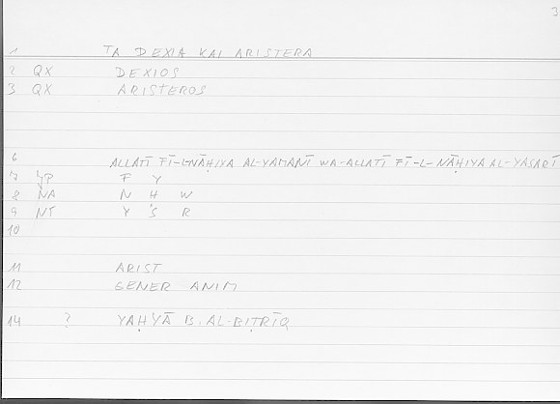 3
1 TA DEXIA KAI ARISTERA
2 QX DEXIOS
3 QX ARISTEROS
6 ALLATĪ FĪ-L-NĀḤIYA AL-YAMANĪ WA-ALLATĪ FĪ-L-NĀḤIYA AL-YASARĪ
7 F Y
8 NA N Ḥ W
9 NT Y S R
10
11 ARIST
12 GENER ANIM
14 ? YAḤYĀ B. AL-BIṬRĪQ